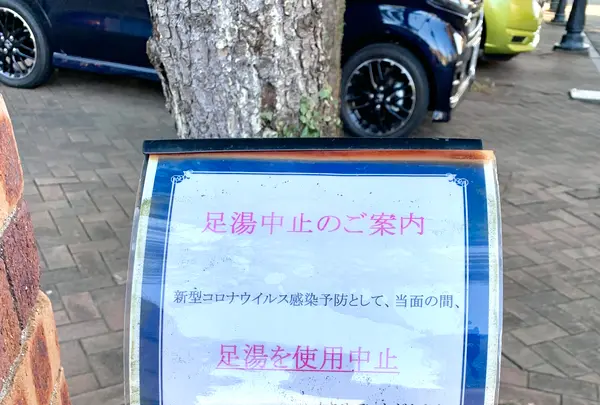 足湯中止のご案内
新型コロナウイルス感染予防として、当面の間、
足湯を使用中止